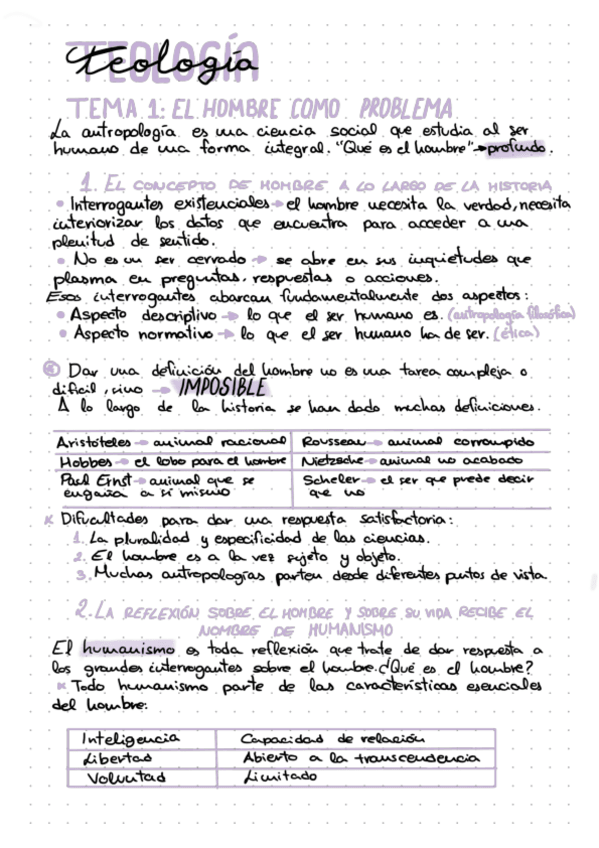 Teología
TEMA 1: EL HOMBRE COMO PROBLEMA
La antropología es una ciencia social que estudia al ser
humano de una forma integral. "Qué es el hombre"→profundo.
1. EL CONCEPTO DE HOMBRE A LO LARGO DE LA HISTORIA
• Interrogantes existenciales → el hombre necesita la verdad, necesita
interiorizar los datos que encuentra para acceder a una
plenitud de sentido.
• No es un ser cerrado → se abre en sus inquietudes que
plasma en preguntas, respuestas o acciones.
Esos interrogantes abarcan fundamentalmente dos aspectos:
• Aspecto descriptivo → lo que el ser humano es. (antropología filosófica)
• Aspecto normativo → lo que el ser humano ha de ser. (ética)
Dar una definición del hombre no es una tarea compleja o
difícil, sino → IMPOSIBLE
A lo largo de la historia se han dado muchas definiciones.
Aristóteles → animal racional Rousseau → animal corrompido
Hobbes → el lobo para el hombre Nietzsche → animal no acabado
Paul Ernst → animal que se Scheler → el ser que puede decir
engaña a sí mismo que no
x Dificultades para dar una respuesta satisfactoria:
1. La pluralidad y especificidad de las ciencias.
2. El hombre es a la vez sujeto y objeto.
3. Muchas antropologías parten desde diferentes puntos de vista.
2. LA REFLEXIÓN SOBRE EL HOMBRE Y SOBRE SU VIDA RECIBE EL
NOMBRE DE HUMANISMO
El humanismo es toda reflexión que trate de dar respuesta a
los grandes interrogantes sobre el hombre. ¿Qué es el hombre?
x Todo humanismo parte de las características esenciales
del hombre:
Inteligencia Capacidad de relación
Libertad Abierto a la transcendencia
Voluntad Limitado